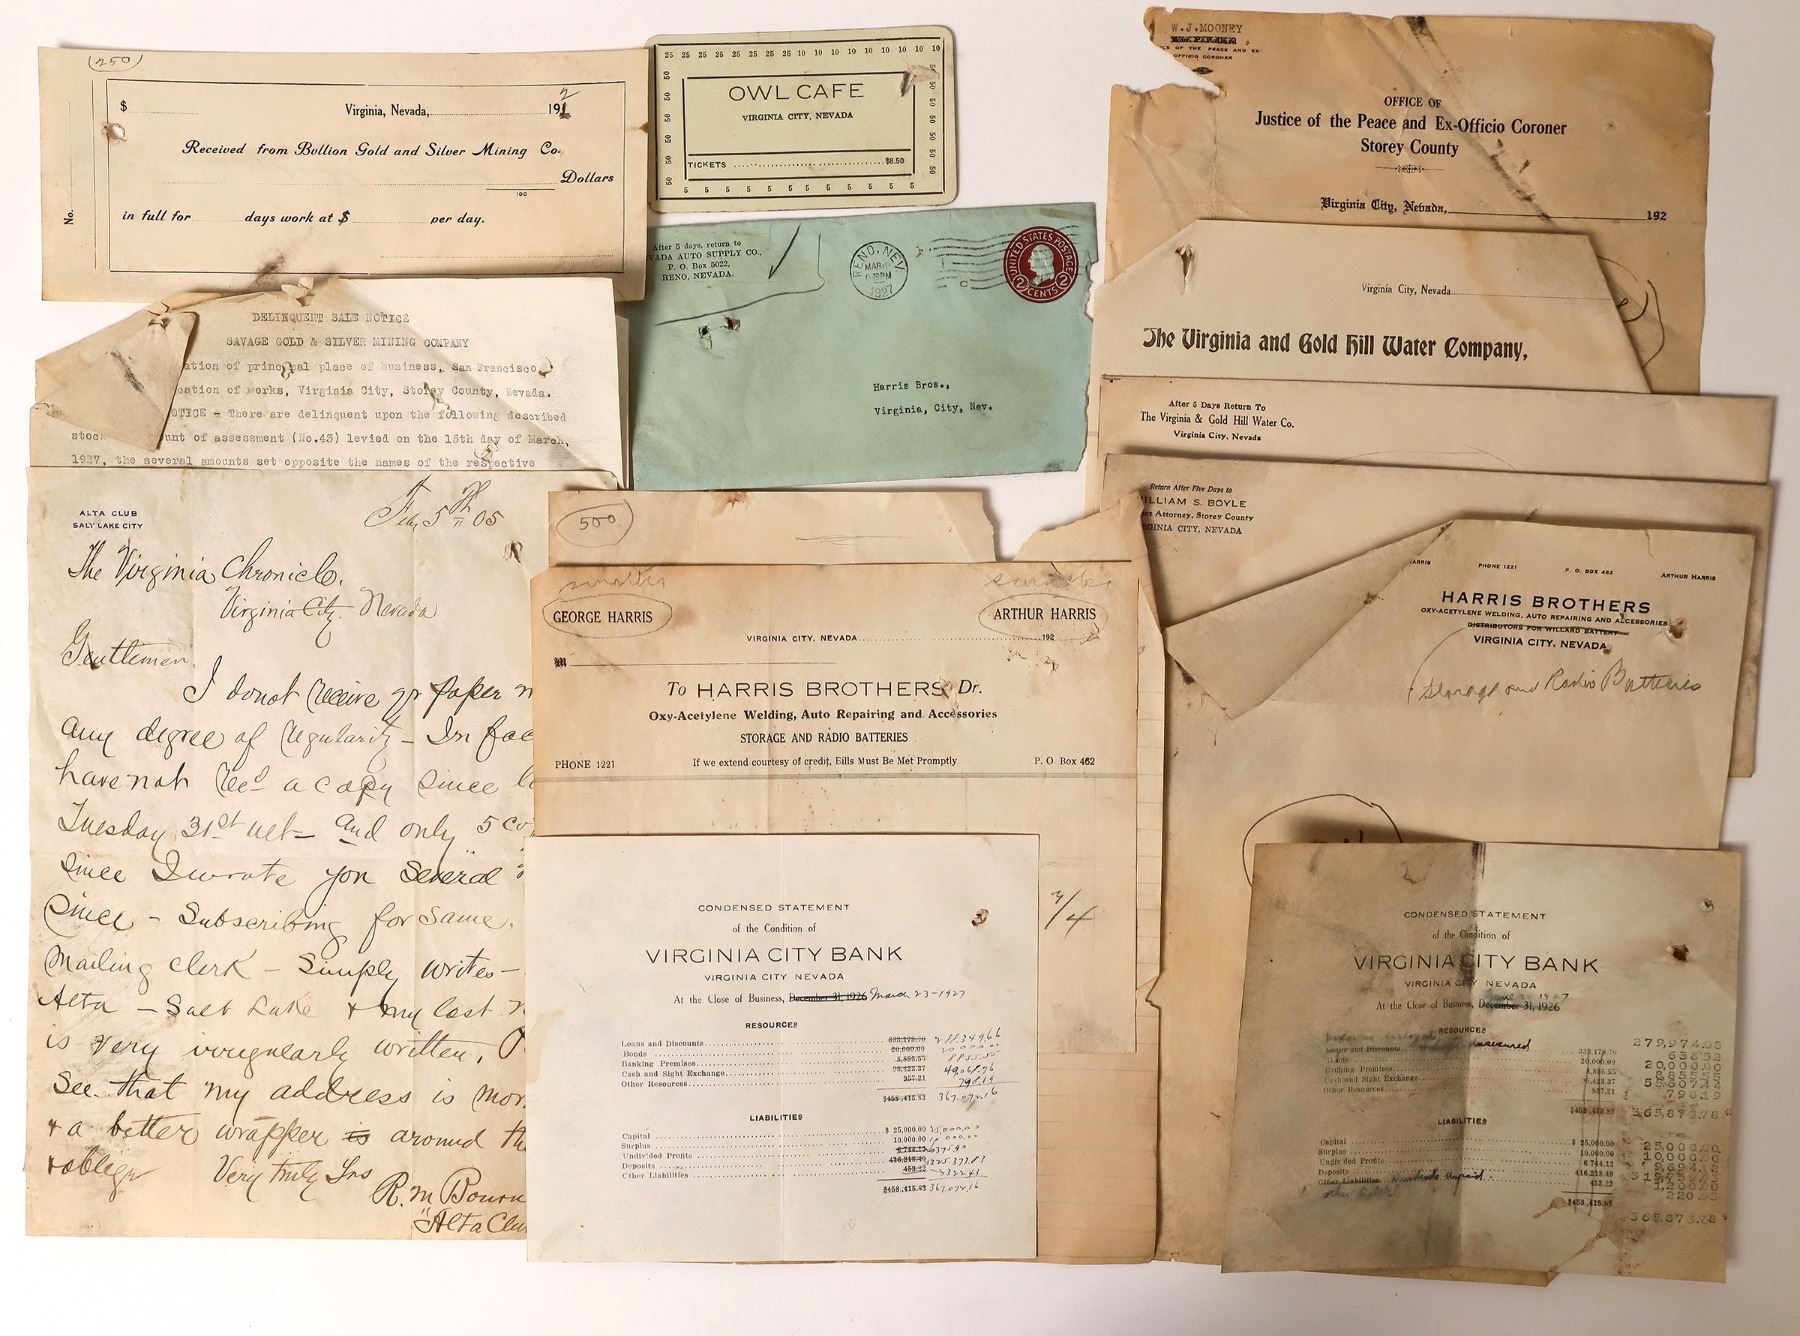 (250)
$ Virginia, Nevada, 191 2
Received from Bullion Gold and Silver Mining Co.
Dollars
100
in full for days work at $ per day.
No.
25 25 25 25 25 25 25 25 10 10 10 10 10 10 10 10 10
50 50 50 50 50 50
OWL CAFE
VIRGINIA CITY, NEVADA
TICKETS $8.50
50 50 50 50 50 50
50 5 5 5 5 5 5 5 5 5 5 5 5 5 5
After 5 days, return to
VADA AUTO SUPPLY CO.,
P. O. Box 5022,
RENO, NEVADA.
RENO, NEV
MAR
PM
1927
UNITED STATES POSTAGE
2 CENTS 2
Harris Bros.,
Virginia, City, Nev.
W.J.MOONEY
CE OF THE PEACE AND EX-
OFFICIO CORONER
OFFICE OF
Justice of the Peace and Ex-Officio Coroner
Storey County
Virginia City, Nevada, 192
Virginia City, Nevada
The Virginia and Gold Hill Water Company,
After 5 Days Return To
The Virginia & Gold Hill Water Co.
Virginia City, Nevada
Return After Five Days to
ILLIAM S. BOYLE
ct Attorney, Storey County
RGINIA CITY, NEVADA
ARRIS PHONE 1221 P. O. BOX 462 ARTHUR HARRIS
HARRIS BROTHERS
OXY-ACETYLENE WELDING, AUTO REPAIRING AND ACCESSORIES
DISTRIBUTORS FOR WILLARD BATTERY
VIRGINIA CITY, NEVADA
Storage and Radio Batteries
DELINQUENT SALE NOTICE
SAVAGE GOLD & SILVER MINING COMPANY
ation of principal place of business, San Francisco,
cation of works, Virginia City, Storey County, Nevada.
OTICE - There are delinquent upon the following described
stock unt of assessment (No.43) levied on the 15th day of March,
1927, the several amounts set opposite the names of the respective
ALTA CLUB
SALT LAKE CITY
Feby 5th 05
The Virginia Chronicle.
Virginia City. Nevada
Gentlemen.
I do not receive yr paper
any degree of regularity - In fac
have not Recd a copy since
Tuesday 31st ult - and only 5 co
since I wrote you several
since - Subscribing for same.
Mailing clerk - Simply writes -
Alta - Salt Lake & my last
is very irregularly written,
See that my address is mor
& a better wrapper is around th
& oblige Very truly Yrs
R. M Bourn
"Alta Clu
500
smaller
GEORGE HARRIS ARTHUR HARRIS
VIRGINIA CITY, NEVADA 192
M
To HARRIS BROTHERS, Dr.
Oxy-Acetylene Welding, Auto Repairing and Accessories
STORAGE AND RADIO BATTERIES
PHONE 1221 If we extend courtesy of credit, Bills Must Be Met Promptly P. O Box 462
CONDENSED STATEMENT
of the Condition of
VIRGINIA CITY BANK
VIRGINIA CITY NEVADA
At the Close of Business, December 31, 1926 March 23-1927
RESOURCES
Loans and Discounts 333,179.70 288349.66
Bonds 20,000.00 20000.00
Banking Premises 8,855.55 8855.55
Cash and Sight Exchange 95,423.37 49,068.76
Other Resources 957.21 798.19
$458,415.83 367.072.16
LIABILITIES
Capital $ 25,000.00 25,000.00
Surplus 10,000.00
Undivided Profits 6 744.12
Deposits 416,218.49
Other Liabilities 453.22
$458,415.83 367.072.16
CONDENSED STATEMENT
of the Condition of
VIRGINIA CITY BANK
VIRGINIA CITY NEVADA
1927
At the Close of Business, December 31, 1926
RESOURCES
Loans and Discounts unsecured 333,179.70 279,974.03
Bonds 20,000.00 638.52
Banking Premises 8,855.55 20,000.00
Cash and Sight Exchange 95,423.37
Other Resources 957.21 798.19
$458,415.83 365,873.78
LIABILITIES
Capital $ 25,000.00 25,000.00
Surplus 10,000.00 10,000.00
Undivided Profits 6 744.12
Deposits 416,218.49
Other Liabilities 453.22
$458,415.83 365,873.78